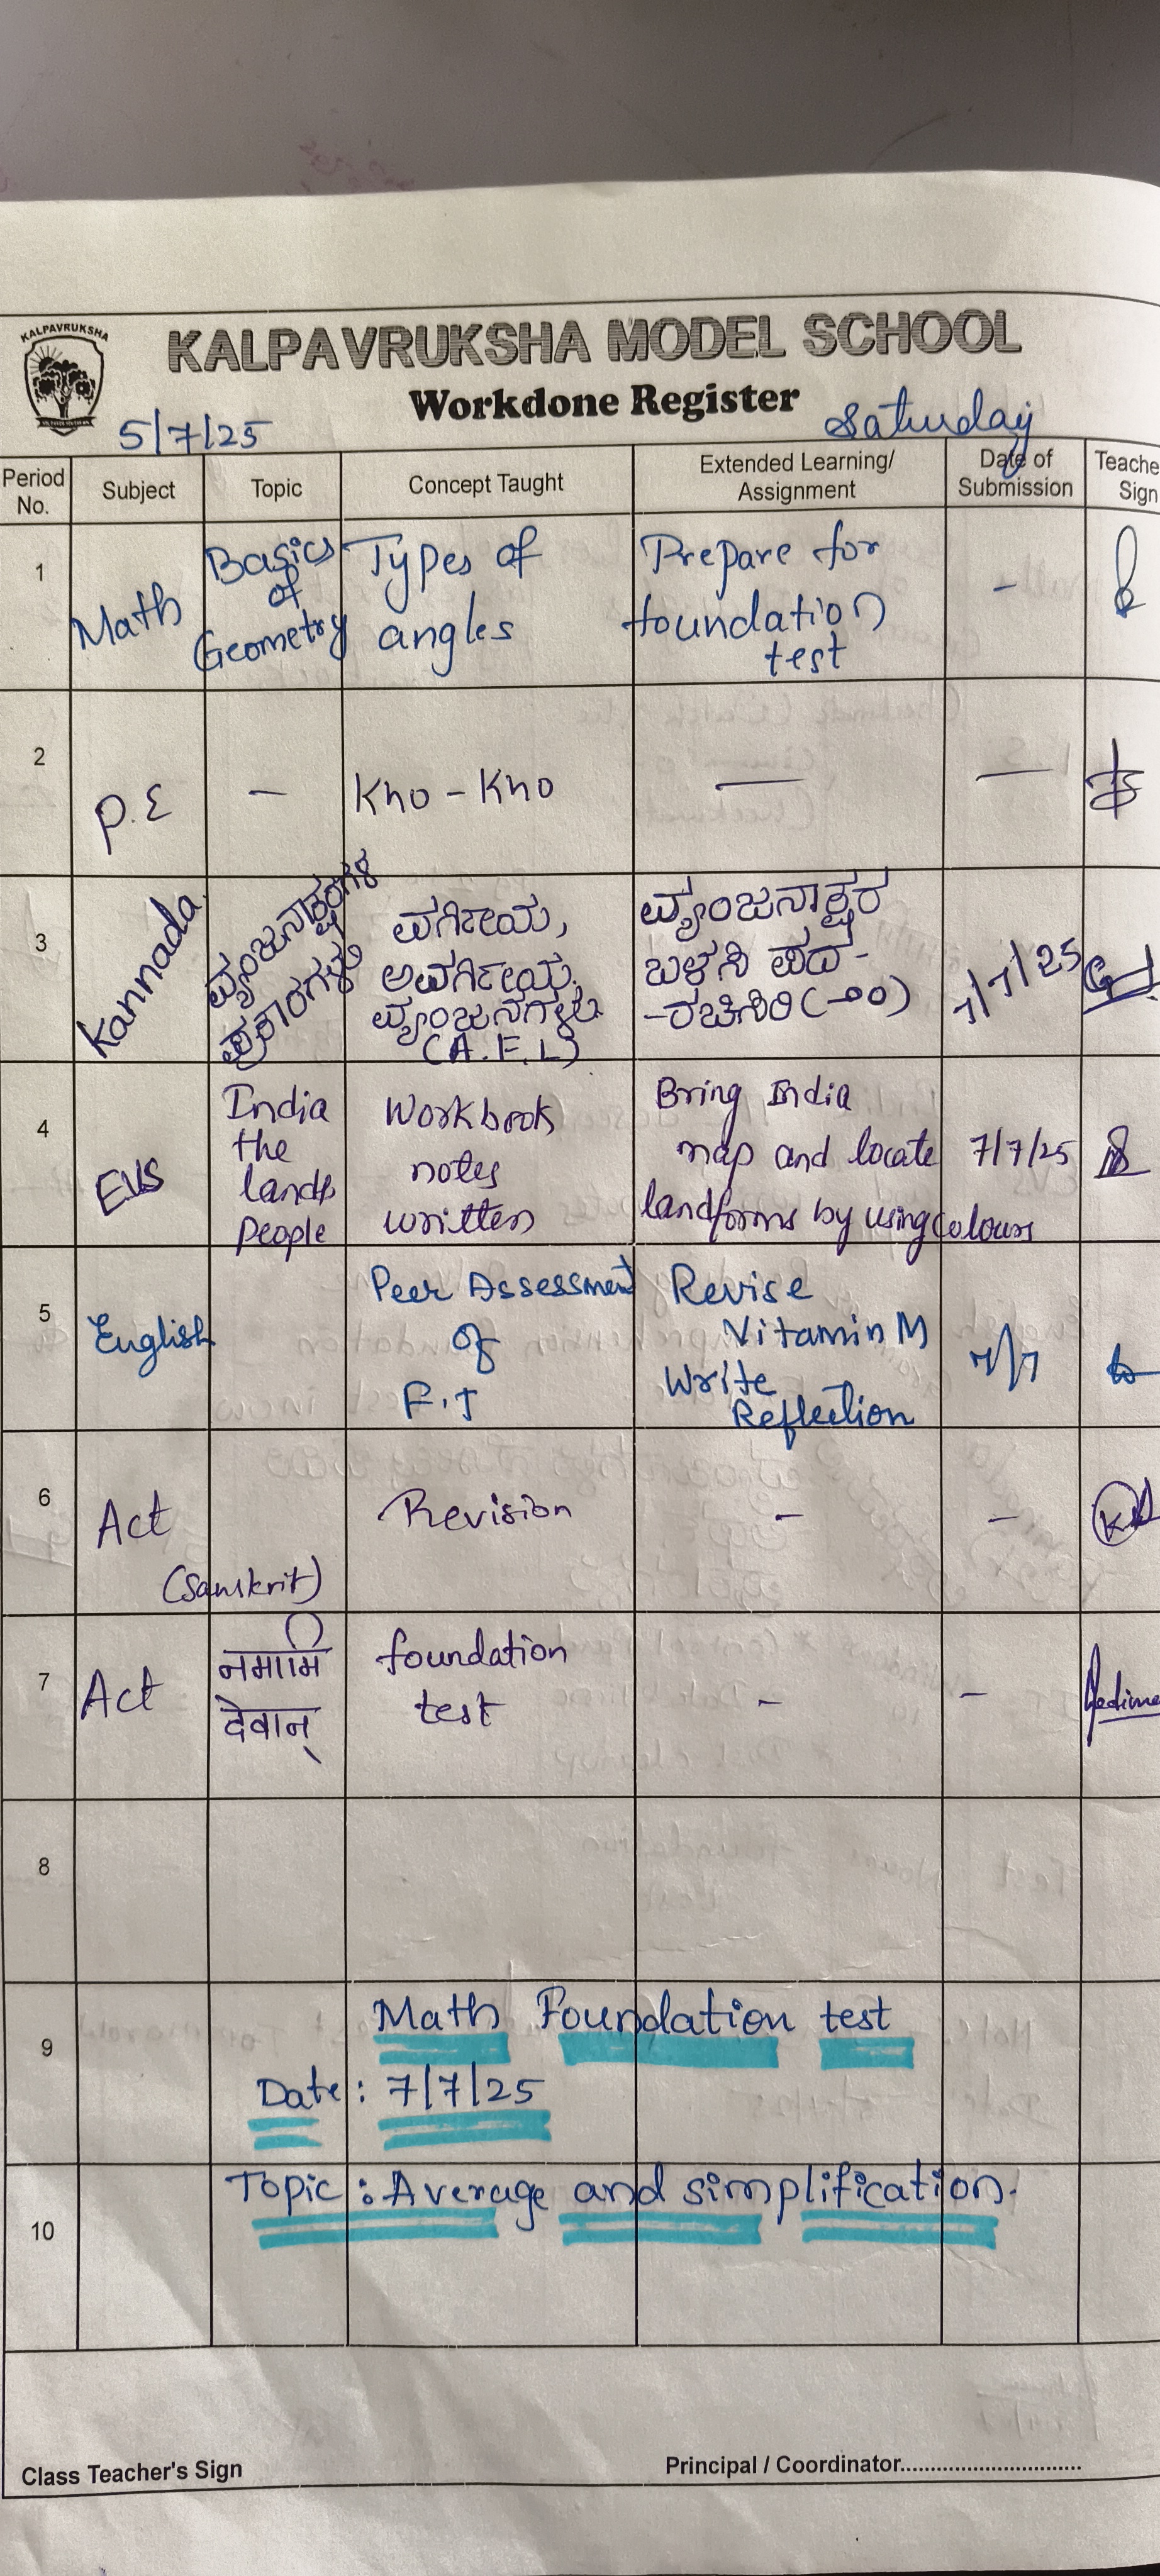 KALPAVRUKSHA
KALPAVRUKSHA MODEL SCHOOL
Workdone Register
5/7/25
Saturday
Period No.
Subject
Topic
Concept Taught
Extended Learning/
Assignment
Date of
Submission
Teache
Sign
1
Math
Basics
of
Geometry
Types of
angles
Prepare for
foundation
test
-
2
P.E
-
Kho - Kho
—
—
3
Kannada
ವ್ಯಂಜನಾಕ್ಷರಗಳ
ಪ್ರಕಾರಗಳು
ವರ್ಗೀಯ,
ಅವರ್ಗೀಯ
ವ್ಯಂಜನಗಳು
(A.F.L)
ವ್ಯಂಜನಾಕ್ಷರ
ಬಳಸಿ ಪದ-
-ರಚಿಸಿರಿ (-೨೦)
7/7/25
4
EVS
India
the
land
People
Workbook
notes
written
Bring India
map and locate
landforms by using colours
7/7/25
5
English
Peer Assessment
of
F.T
Revise
Vitamin M
Write
Reflection
7/7
6
Act
(Sanskrit)
Revision
-
-
7
Act
नमामि
देवान्
foundation
test
-
-
8
9
Math Foundation test
Date : 7/7/25
10
Topic : Average and simplification.
Class Teacher's Sign
Principal / Coordinator..............................